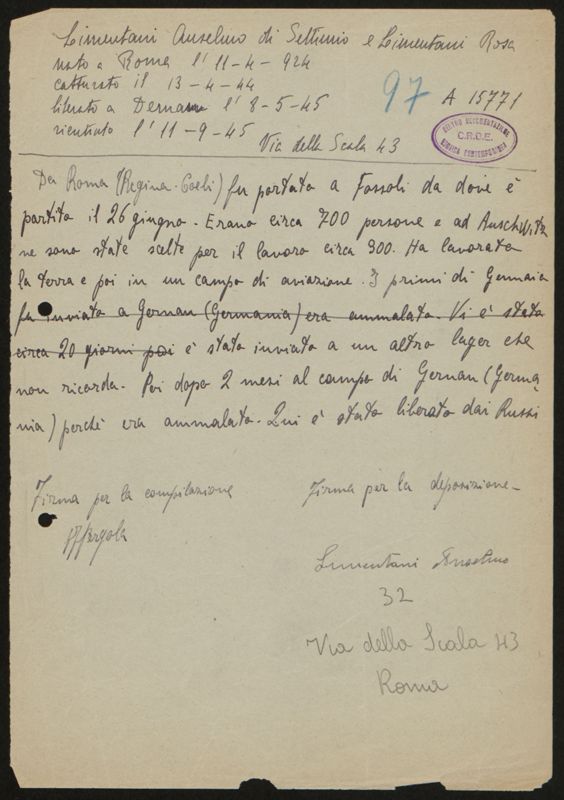 Limentani Anselmo di Settimio e Limentani Rosa
nato a Roma l'11-4-924
catturato il 13-4-44
liberato a Dernau l'8-5-45
rientrato l'11-9-45
97 A 15771
Via della Scala 43
CENTRO DOCUMENTAZIONE
C.R.D.E.
EBRAICA CONTEMPORANEA
Da Roma (Regina-Coeli) fu portato a Fossoli da dove è
partito il 26 giugno. Erano circa 700 persone e ad Auschwitz
ne sono state scelte per il lavoro circa 300. Ha lavorato
la terra e poi in un campo di aviazione. I primi di Gennaio
fu inviato a Gernau (Germania) era ammalato. Vi è stato
circa 20 giorni poi è stato inviato a un altro lager che
non ricorda. Poi dopo 2 mesi al campo di Gernau (Germa
nia) perchè era ammalato. Qui è stato liberato dai Russi
Firma per la compilazione
Firma per la deposizione
Limentani Anselmo
32
Via della Scala 43
Roma